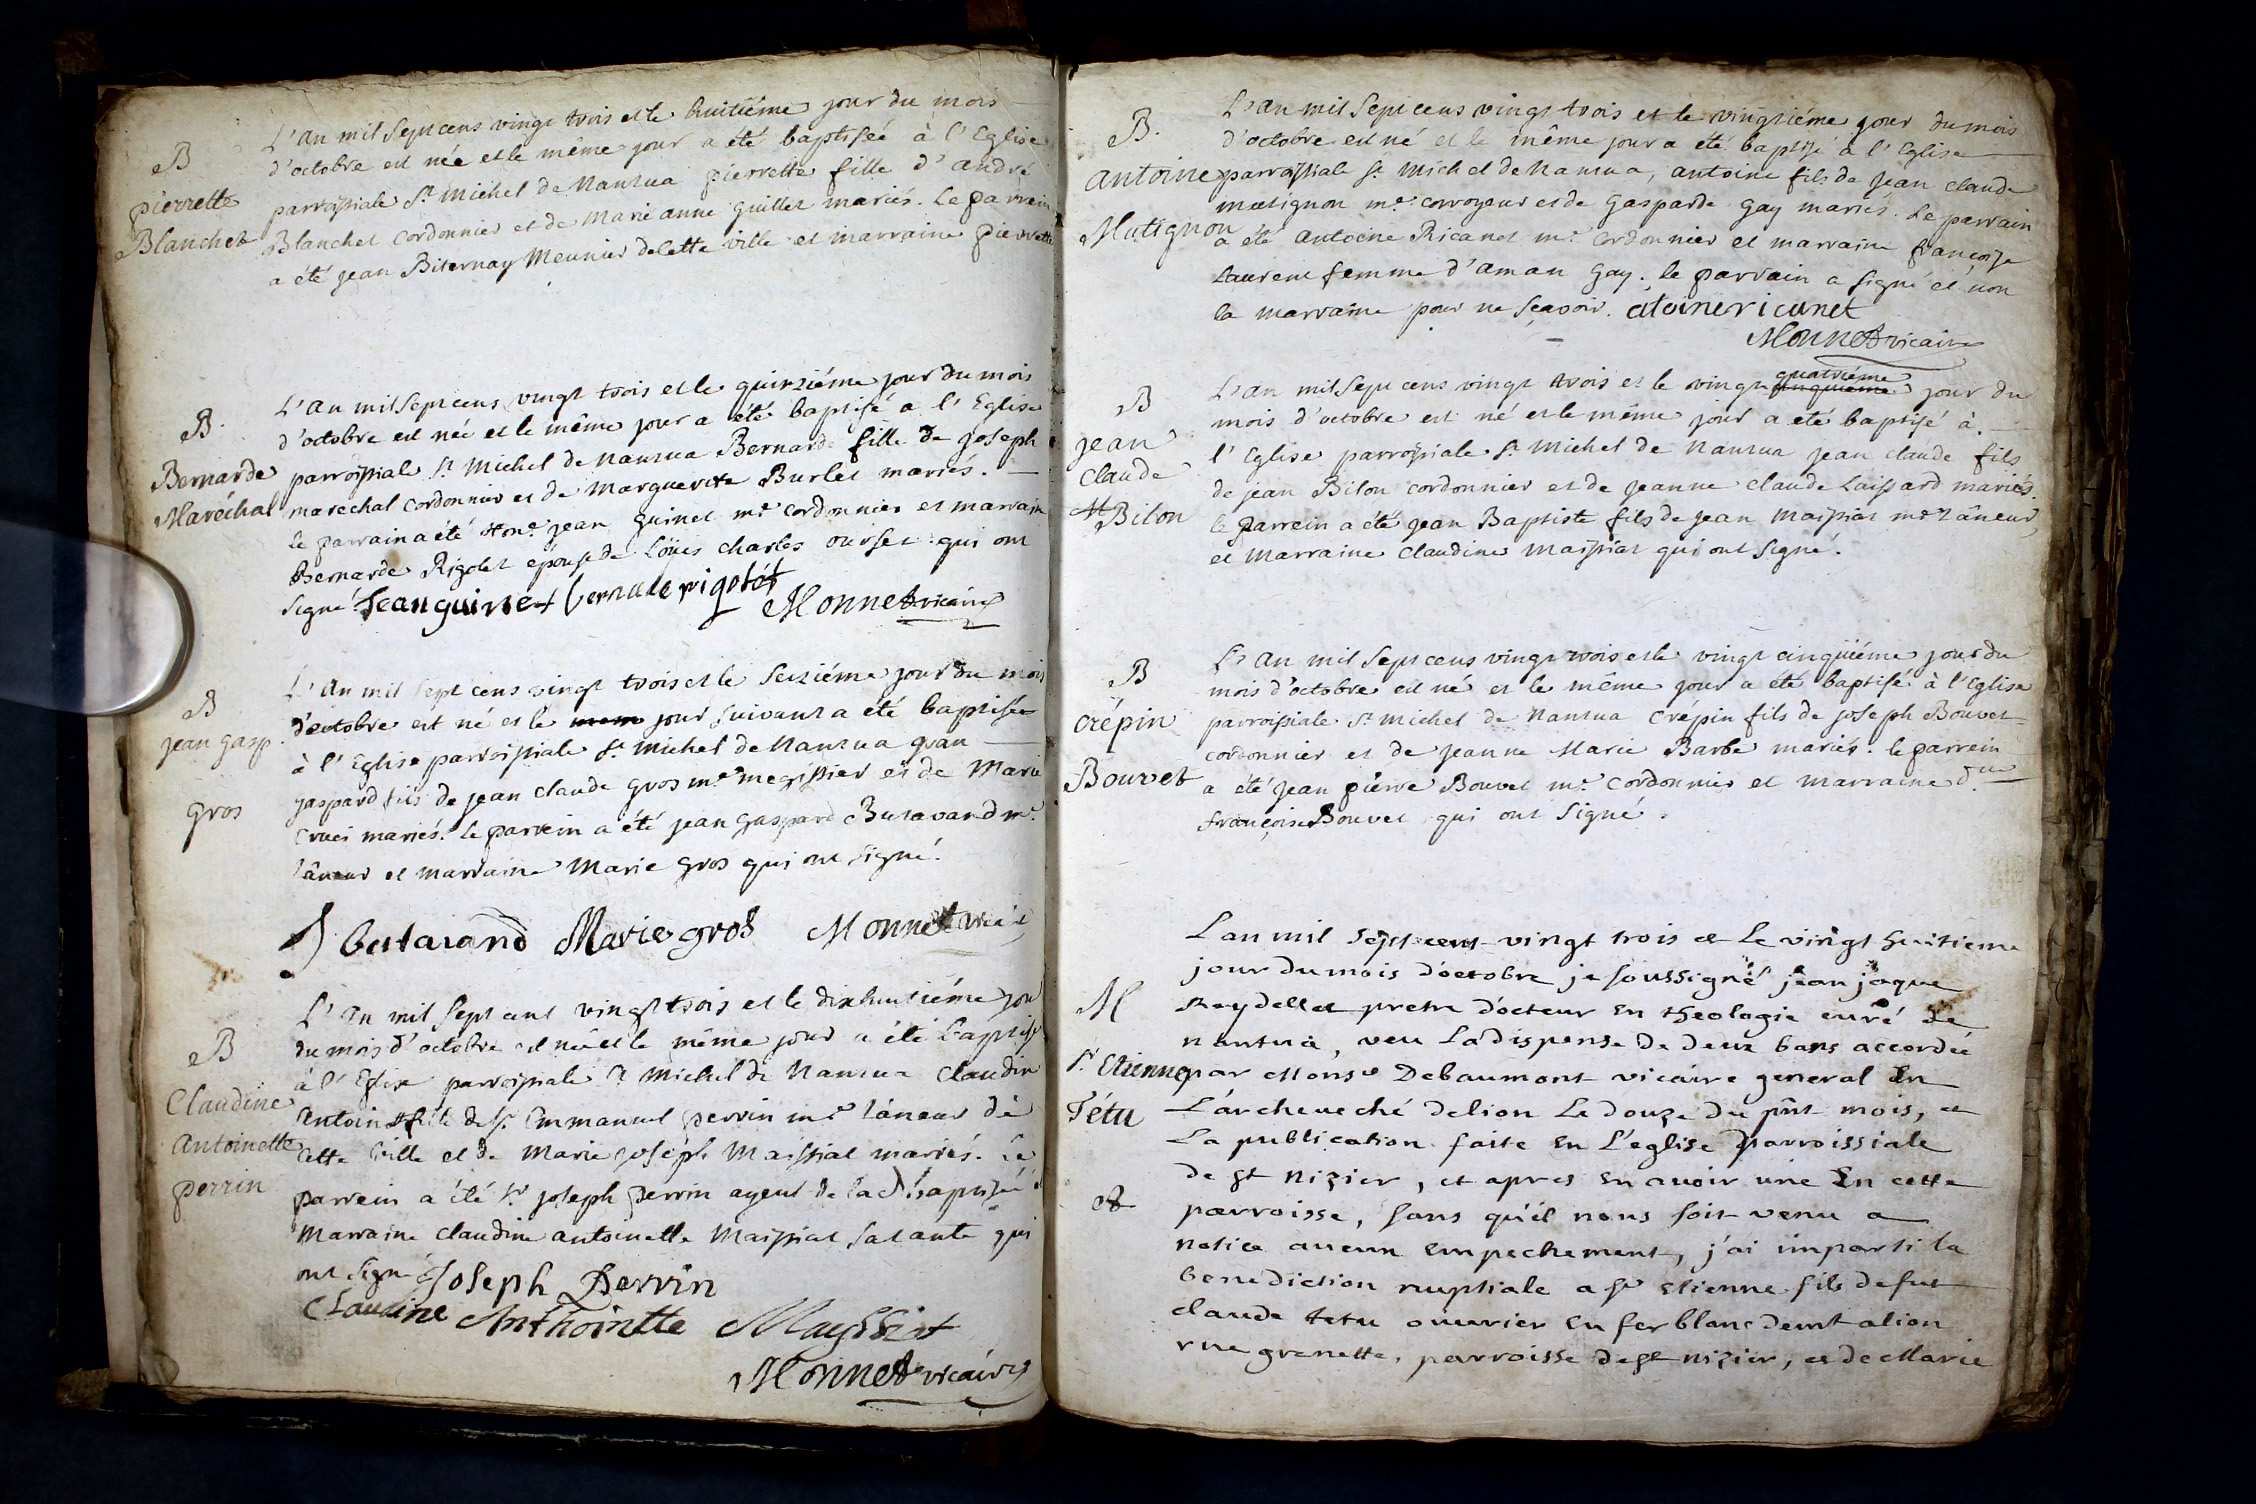 B
pierrette
Blanchet
L'an mil sept cens vingt trois et le huitiéme jour du mois
d'octobre est née et le même jour a été baptisée à l'Eglise
parroissiale St. Michel de Nantua pierrette fille d'andré
Blanchet cordonnier et de Marie anne guillet mariés. Le parrein
a été jean Biternay Meunier de cette ville et marraine pierrette
B.
Bernarde
Maréchal
L'an mil sept cens vingt trois et le quinziéme jour du mois
d'octobre est née et le même jour a été baptisé a l'Eglise
parroissiale St. Michel de Nantua Bernarde fille de joseph
marechal cordonnier et de Marguerite Burlet mariés.
le parrain a été hon.e jean guinet m.e cordonnier et marraine
Bernarde Rigolet épouse de Loüis charles ourset qui ont
signé. Jean guinet bernade rigolét
Monnet vicaire
B
jean gasp.
gros
L'an mil sept cens vingt trois et le seiziéme jour du mois
d'octobre est né et le mem jour suivant a été baptisée
à l'Eglise parroissiale St. Michel de Nantua jean
gaspard fils de jean claude gros m.e megissier et de Marie
cruci mariés. le parrein a été jean gaspard Butavand m.e
tâneur et marraine Marie gros qui ont signé.
J butavand Marie gros Monnet vicaire
B
Claudine
Antoinette
perrin
L'an mil sept cent vingt trois et le dixhuitiéme jour
du mois d'octobre est née et le même jour a été baptisée
à l'Eglise parroissiale St Michel de Nantua Claudine
antoinette fille de Sr. Emmanuel perrin m.e tâneur de
cette ville et de Marie joséph Maissiat mariés. Le
parrein a été Sr joseph perrin ayeul de la baptisée
Marraine Claudine antoinette Maissiat sa tante qui
ont signé Joseph Perrin
Claudine Anthoinette Mayssiat
Monnet vicaire
B.
antoine
Matignon
L'an mil sept cens vingt trois et le vingtiéme jour du mois
d'octobre est né et le même jour a été baptisé à l'Eglise
parroissiale St. Michel de Nantua, antoine fils de jean claude
matignon m.e corroyeur et de gasparde gay mariés. Le parrain
a été antoine Ricanet m.e cordonnier et marraine françoise
Laurent femme d'aman gay. le parrain a signé et non
la marraine pour ne sçavoir. atoine ricanet
Monnet vicaire
B
jean
claude
Bilon
L'an mil sept cens vingt trois et le vingt cinquiéme quatriéme jour du
mois d'octobre est né et le même jour a été baptisé à
l'Eglise parroissiale St Michel de Nantua jean claude fils
de jean Bilon cordonnier et de jeanne claude Laissard mariés.
le parrein a été jean Baptiste fils de jean Maissiat m.e tâneur,
et marraine claudine Maissiat qui ont signé.
B
crépin
Bouvet
L'an mil sept cens vingt trois et le vingt cinquiéme jour du
mois d'octobre est né et le même jour a été baptisé à l'Eglise
parroissiale St Michel de Nantua crépin fils de joseph Bouvet
cordonnier et de jeanne Marie Barbe mariés. le parrein
a été jean pierre Bouvet m.e cordonnier et marraine d.lle
françoise Bouvet qui ont signé.
M
Sr Etienne
Tétu
et
Lan mil sept cent vingt trois et le vingt huitieme
jour du mois d'octobre je soussigné jean jaque
Reydellet pretre docteur en theologie curé de
nantua, veu la dispense de deux bans accordée
par Monsr Debaumont vicaire general en
L'archeveché de lion le douze du pnt mois, et
La publication faite en L'eglise parroissiale
de st nizier, et apres en avoir une en cette
parroisse, sans qu'il nous soit venu a
notice aucun empechement, j'ai imparti la
benediction nuptiale a sr etienne fils de fut
claude tetu ouvrier en fer blanc demt a lion
rue grenette, parroisse de st nizier, et de Marie